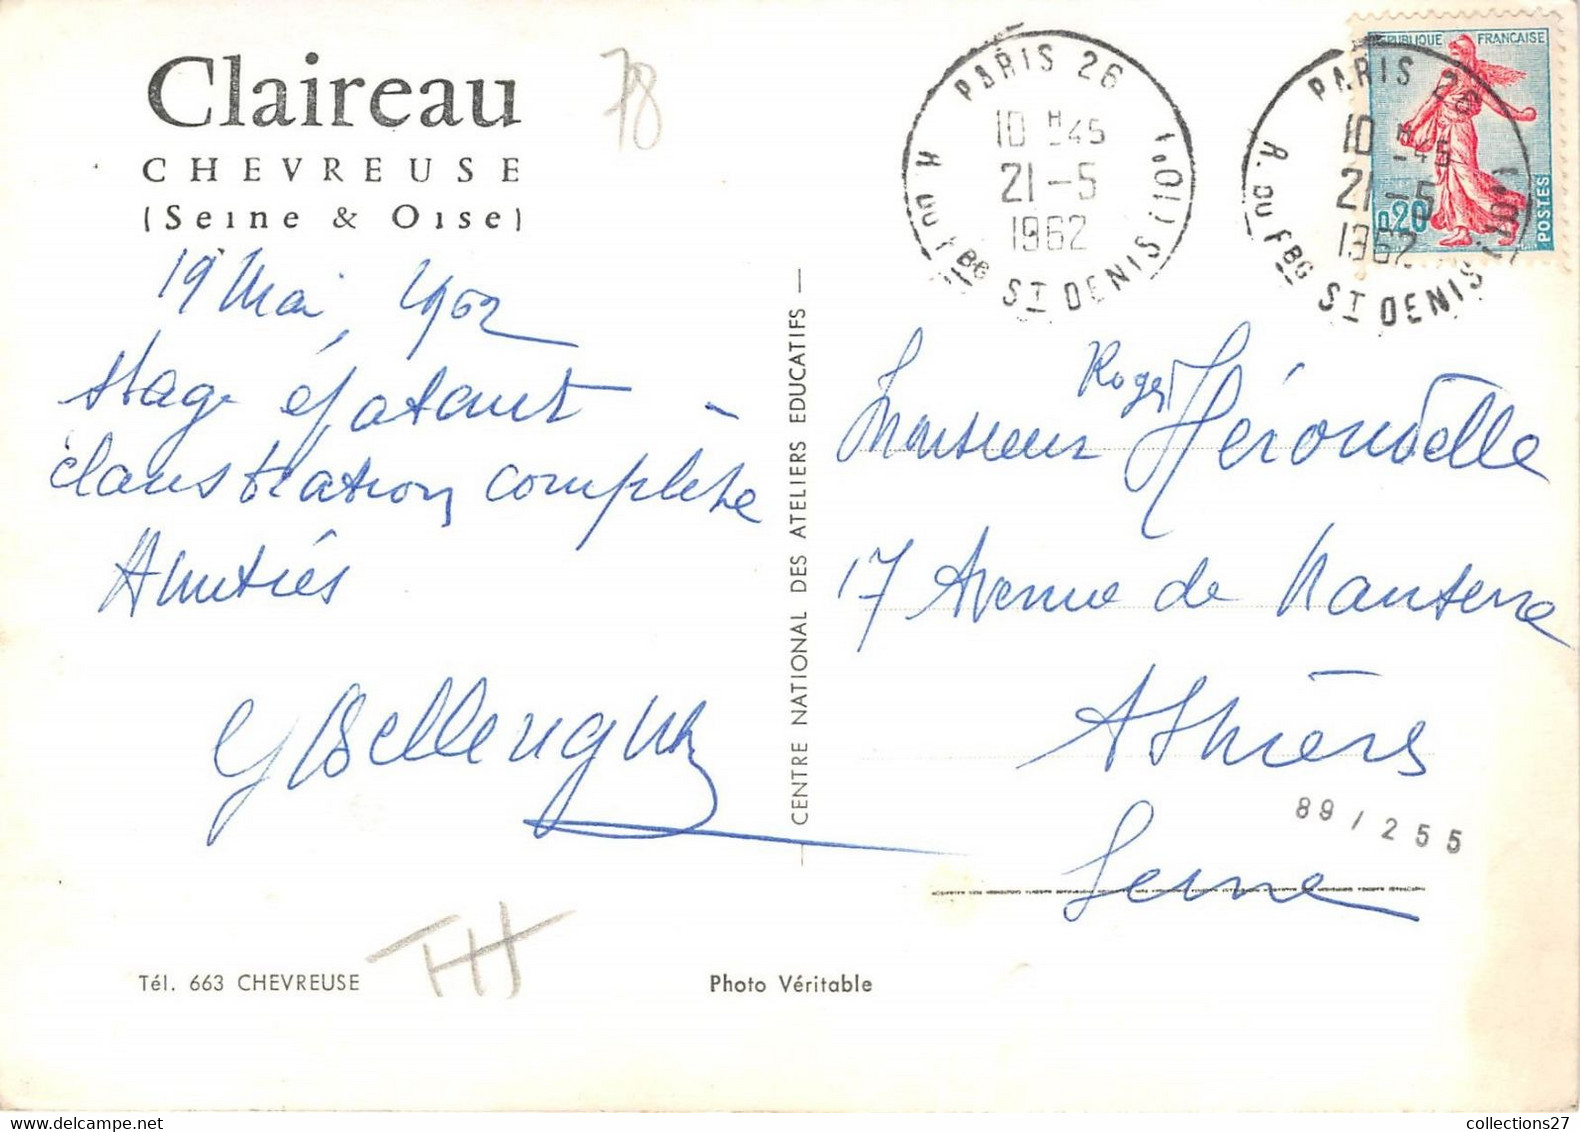 Claireau
CHEVREUSE
(Seine & Oise)
78
19 Mai, 1962
Stage épatant -
claustration complète
Amitiés
CENTRE NATIONAL DES ATELIERS EDUCATIFS
PARIS 26
10 H 45
21-5
1962
R. DU FBG ST DENIS (10°)
PARIS 26
10 H 45
21-5
1962
R. DU FBG ST DENIS (10°)
REPUBLIQUE FRANCAISE
0,20
POSTES
Roger
Monsieur Hérouvelle
17 Avenue de Nanterre
Asnières
Seine
89/255
Tél. 663 CHEVREUSE
TH
Photo Véritable
collections27